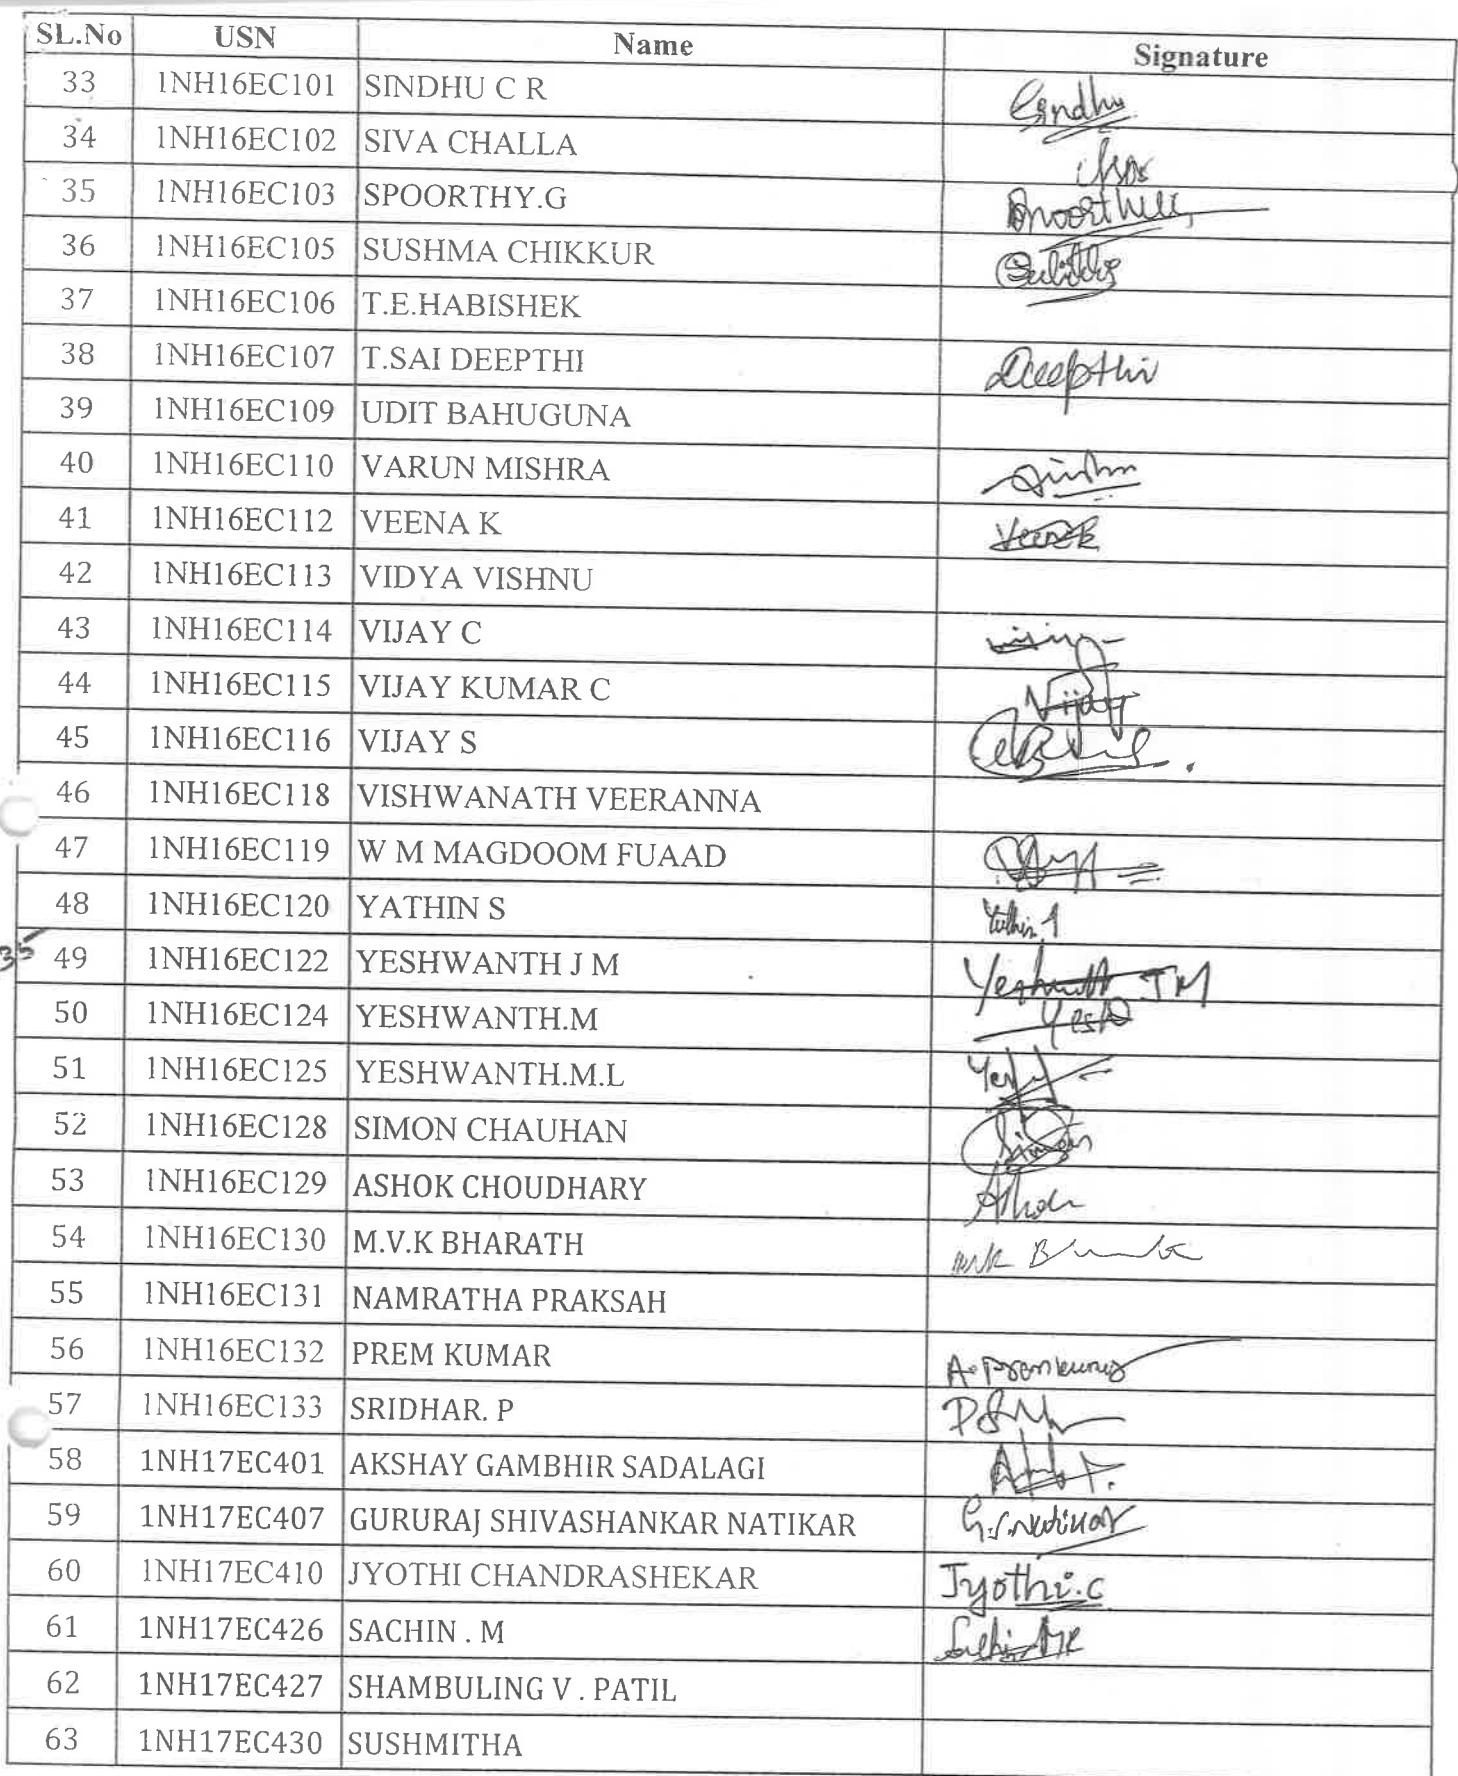 SL.No USN Name Signature
33 1NH16EC101 SINDHU C R Sindhu
34 1NH16EC102 SIVA CHALLA
35 1NH16EC103 SPOORTHY.G
36 1NH16EC105 SUSHMA CHIKKUR
37 1NH16EC106 T.E.HABISHEK
38 1NH16EC107 T.SAI DEEPTHI Deepthi
39 1NH16EC109 UDIT BAHUGUNA
40 1NH16EC110 VARUN MISHRA
41 1NH16EC112 VEENA K
42 1NH16EC113 VIDYA VISHNU
43 1NH16EC114 VIJAY C
44 1NH16EC115 VIJAY KUMAR C Vijay
45 1NH16EC116 VIJAY S
46 1NH16EC118 VISHWANATH VEERANNA
47 1NH16EC119 W M MAGDOOM FUAAD
48 1NH16EC120 YATHIN S
35 49 1NH16EC122 YESHWANTH J M Yeshwanth JM
50 1NH16EC124 YESHWANTH.M
51 1NH16EC125 YESHWANTH.M.L
52 1NH16EC128 SIMON CHAUHAN Simon
53 1NH16EC129 ASHOK CHOUDHARY Ashok
54 1NH16EC130 M.V.K BHARATH
55 1NH16EC131 NAMRATHA PRAKSAH
56 1NH16EC132 PREM KUMAR A. Premkumar
57 1NH16EC133 SRIDHAR. P
58 1NH17EC401 AKSHAY GAMBHIR SADALAGI
59 1NH17EC407 GURURAJ SHIVASHANKAR NATIKAR G.S.Natikar
60 1NH17EC410 JYOTHI CHANDRASHEKAR Jyothi.C
61 1NH17EC426 SACHIN . M
62 1NH17EC427 SHAMBULING V . PATIL
63 1NH17EC430 SUSHMITHA